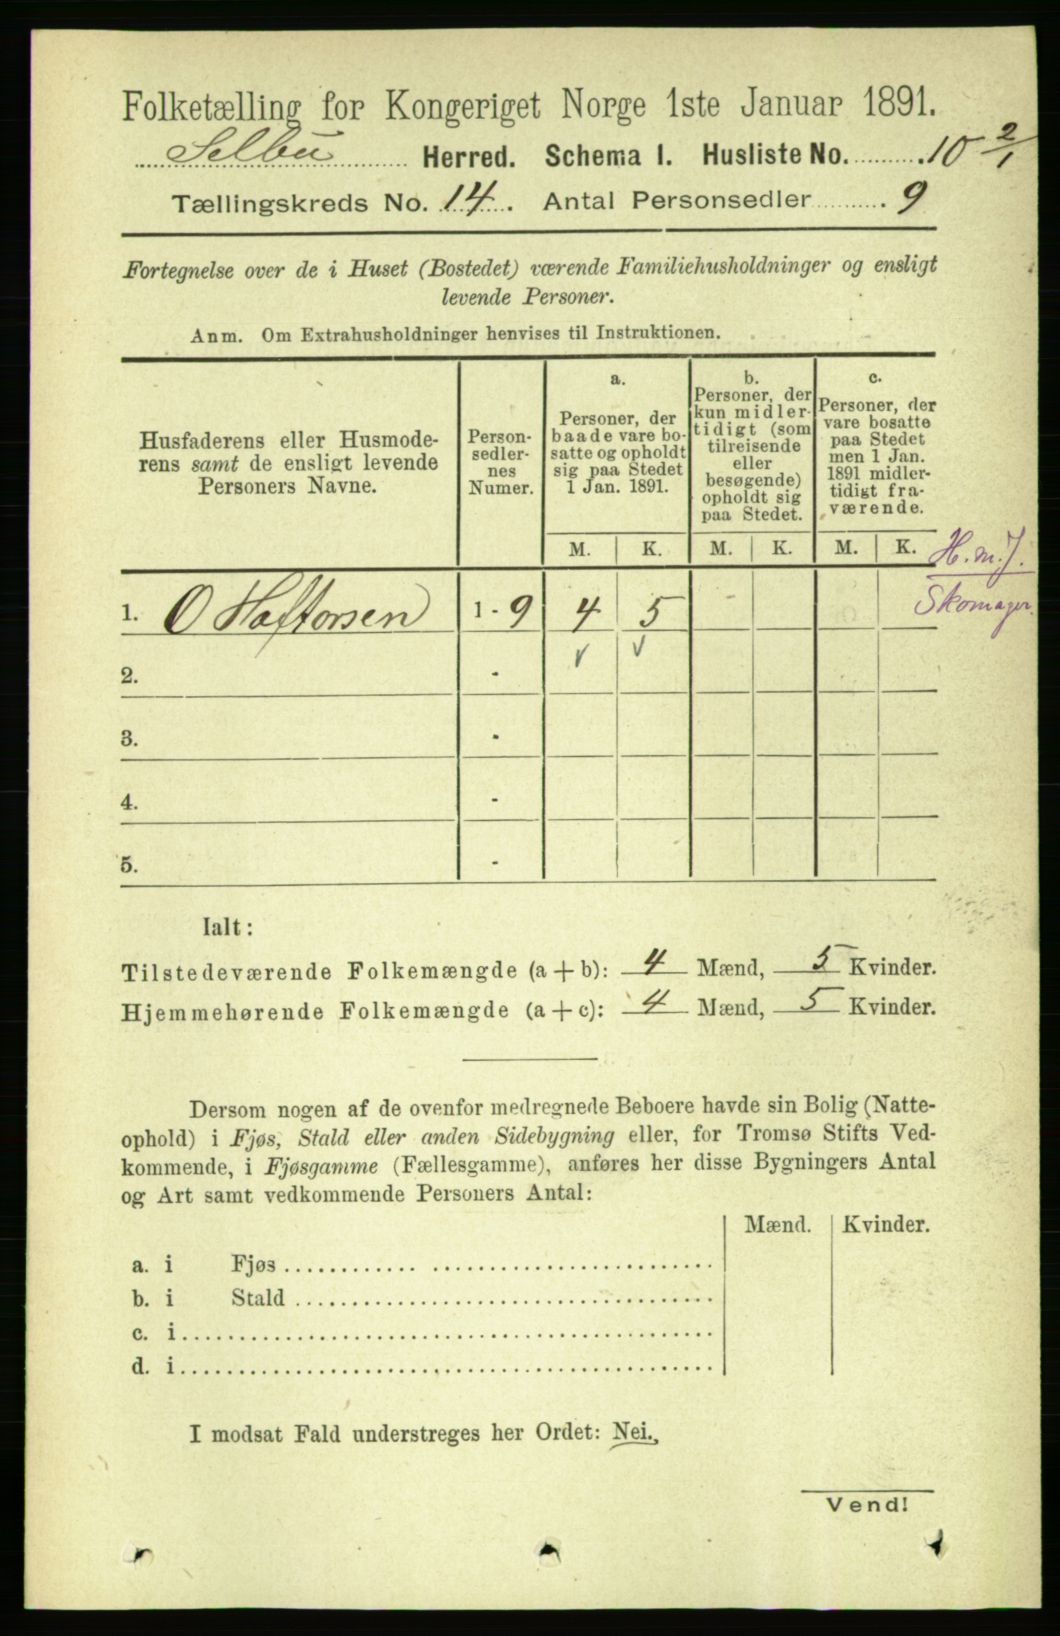 Folketælling for Kongeriget Norge 1ste Januar 1891.
Selbu Herred. Schema I. Husliste No. 10 2/1
Tællingskreds No. 14. Antal Personsedler 9
Fortegnelse over de i Huset (Bostedet) værende Familiehusholdninger og ensligt
levende Personer.
Anm. Om Extrahusholdninger henvises til Instruktionen.
Husfaderens eller Husmode-
rens samt de ensligt levende
Personers Navne.
Person-
sedler-
nes
Numer.
a.
Personer, der
baade vare bo-
satte og opholdt
sig paa Stedet
1 Jan. 1891.
b.
Personer, der
kun midler-
tidigt (som
tilreisende
eller
besøgende)
opholdt sig
paa Stedet.
c.
Personer, der
vare bosatte
paa Stedet
men 1 Jan.
1891 midler-
tidigt fra-
værende.
M. K. M. K. M. K.
H. m. J.
Skomager.
1. O Haftorsen 1 - 9 4 5
2. -
3. -
4. -
5. -
Ialt:
Tilstedeværende Folkemængde (a + b): 4 Mænd, 5 Kvinder.
Hjemmehørende Folkemængde (a + c): 4 Mænd, 5 Kvinder.
Dersom nogen af de ovenfor medregnede Beboere havde sin Bolig (Natte-
ophold) i Fjøs, Stald eller anden Sidebygning eller, for Tromsø Stifts Ved-
kommende, i Fjøsgamme (Fællesgamme), anføres her disse Bygningers Antal
og Art samt vedkommende Personers Antal:
Mænd. Kvinder.
a. i Fjøs
b. i Stald
c. i
d. i
I modsat Fald understreges her Ordet: Nei.
Vend!